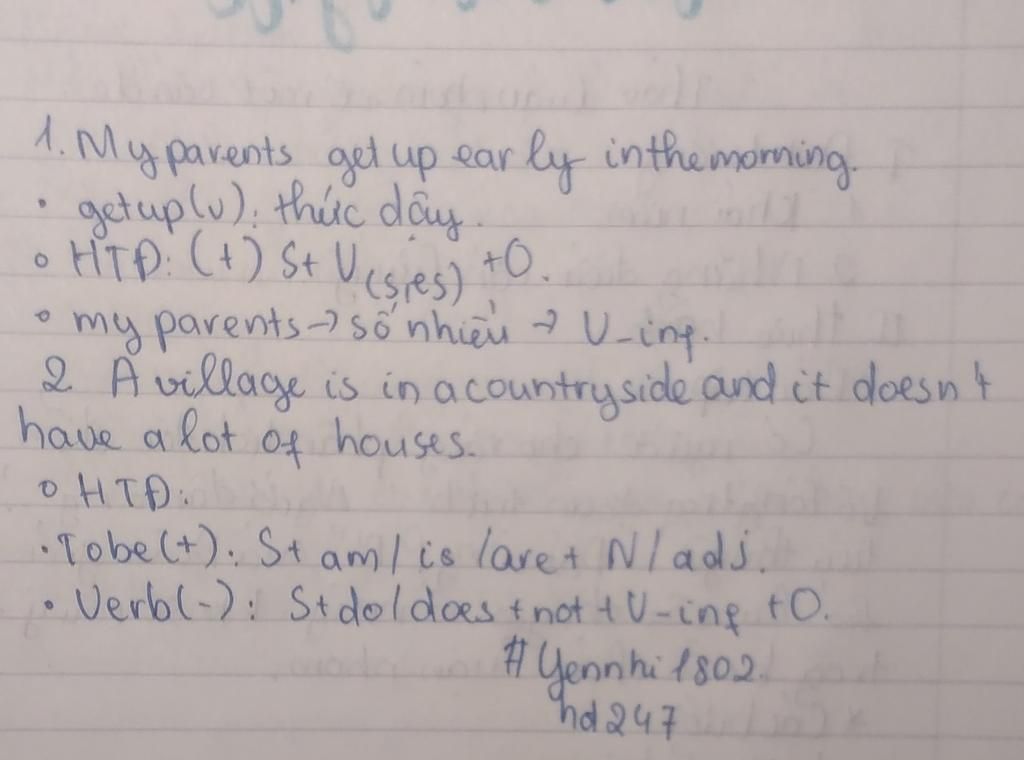 1. My parents get up early in the morning.
• get up (v): thức dậy.
o HTĐ: (+) S + V(s,es) + O.
o my parents → số nhiều → V-inf.
2 A village is in a countryside and it doesn't
have a lot of houses.
o HTĐ:
• Tobe (+): S + am / is / are + N / adj.
• Verb (-): S + do / does + not + V-inf + O.
# Yennhi1802.
hd247